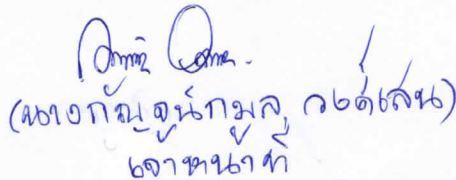 (นางกัญจน์กมูล วงค์เสน)
เจ้าหน้าที่